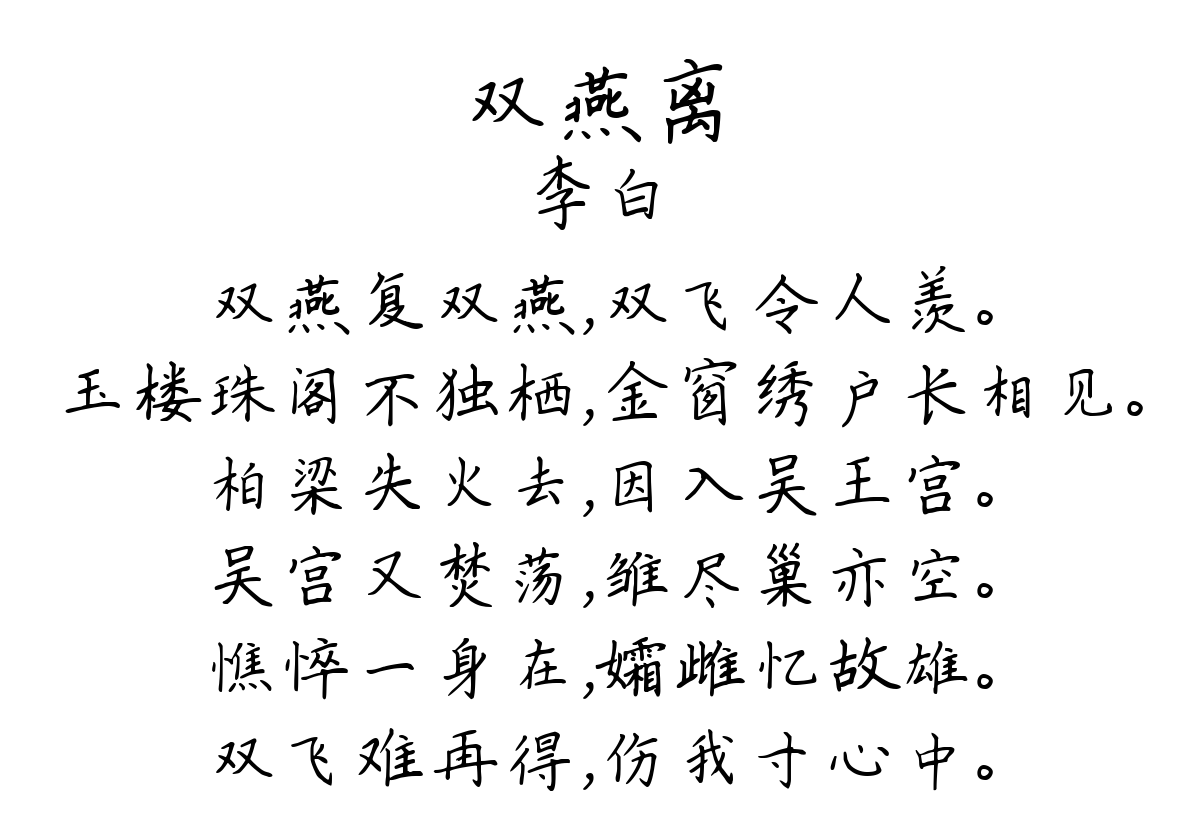 双燕离
李白
双燕复双燕,双飞令人羡。
玉楼珠阁不独栖,金窗绣户长相见。
柏梁失火去,因入吴王宫。
吴宫又焚荡,雏尽巢亦空。
憔悴一身在,孀雌忆故雄。
双飞难再得,伤我寸心中。